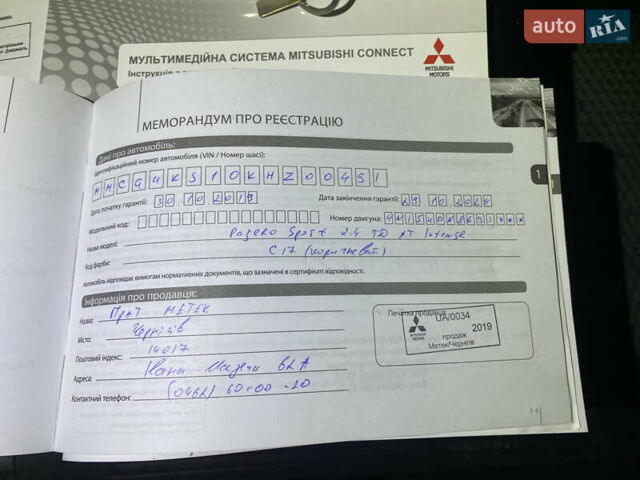 auto RIA.com
МУЛЬТИМЕДІЙНА СИСТЕМА MITSUBISHI CONNECT
Інструкція з
MITSUBISHI
MOTORS
МЕМОРАНДУМ ПРО РЕЄСТРАЦІЮ
1
Дані про автомобіль:
Ідентифікаційний номер автомобіля (VIN / Номер шасі):
MMCGUKS10KHZ00451
Дата початку гарантії: 30.10.2019 Дата закінчення гарантії: 29.10.2024
Модельний код: Номер двигуна:
Назва моделі: Pajero Sport 2.4 TD AT Intense
Код фарби: C17 (коричневий)
Автомобіль відповідає вимогам нормативних документів, що зазначені в сертифікаті відповідності.
Інформація про продавця:
Назва: ПрАТ МЕТЕК
Місто: Чернігів
Поштовий індекс: 14017
Адреса: Івана Мазепи 62А
Контактний телефон: (0462) 60-00-20
Печатка продавця:
UA/0034
MITSUBISHI
MOTORS
продаж 2019
Метек/Чернігів
1-1